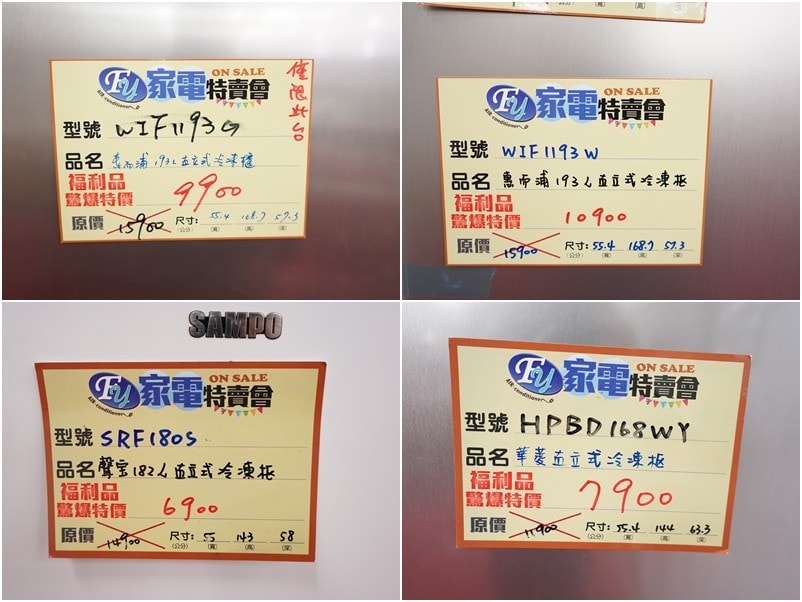 Fy 家電特賣會
ON SALE
Air conditioner
僅限此台
型號 WIF1193G
品名 惠而浦193L直立式冷凍櫃
福利品
驚爆特價 9900
原價 15900 尺寸: 55.4 168.7 57.3
(公分) (寬) (高) (深)
Fy 家電特賣會
ON SALE
Air conditioner
型號 WIF1193W
品名 惠而浦193L直立式冷凍柜
福利品
驚爆特價 10900
原價 15900 尺寸: 55.4 168.7 57.3
(公分) (寬) (高) (深)
SAMPO
Fy 家電特賣會
ON SALE
Air conditioner
型號 SRF180S
品名 聲宝182L直立式冷凍柜
福利品
驚爆特價 6900
原價 14900 尺寸: 55 143 58
(公分) (寬) (高) (深)
Fy 家電特賣會
ON SALE
Air conditioner
型號 HPBD168WY
品名 華菱直立式冷凍柜
福利品
驚爆特價 7900
原價 11900 尺寸: 55.4 144 63.3
(公分) (寬) (高) (深)